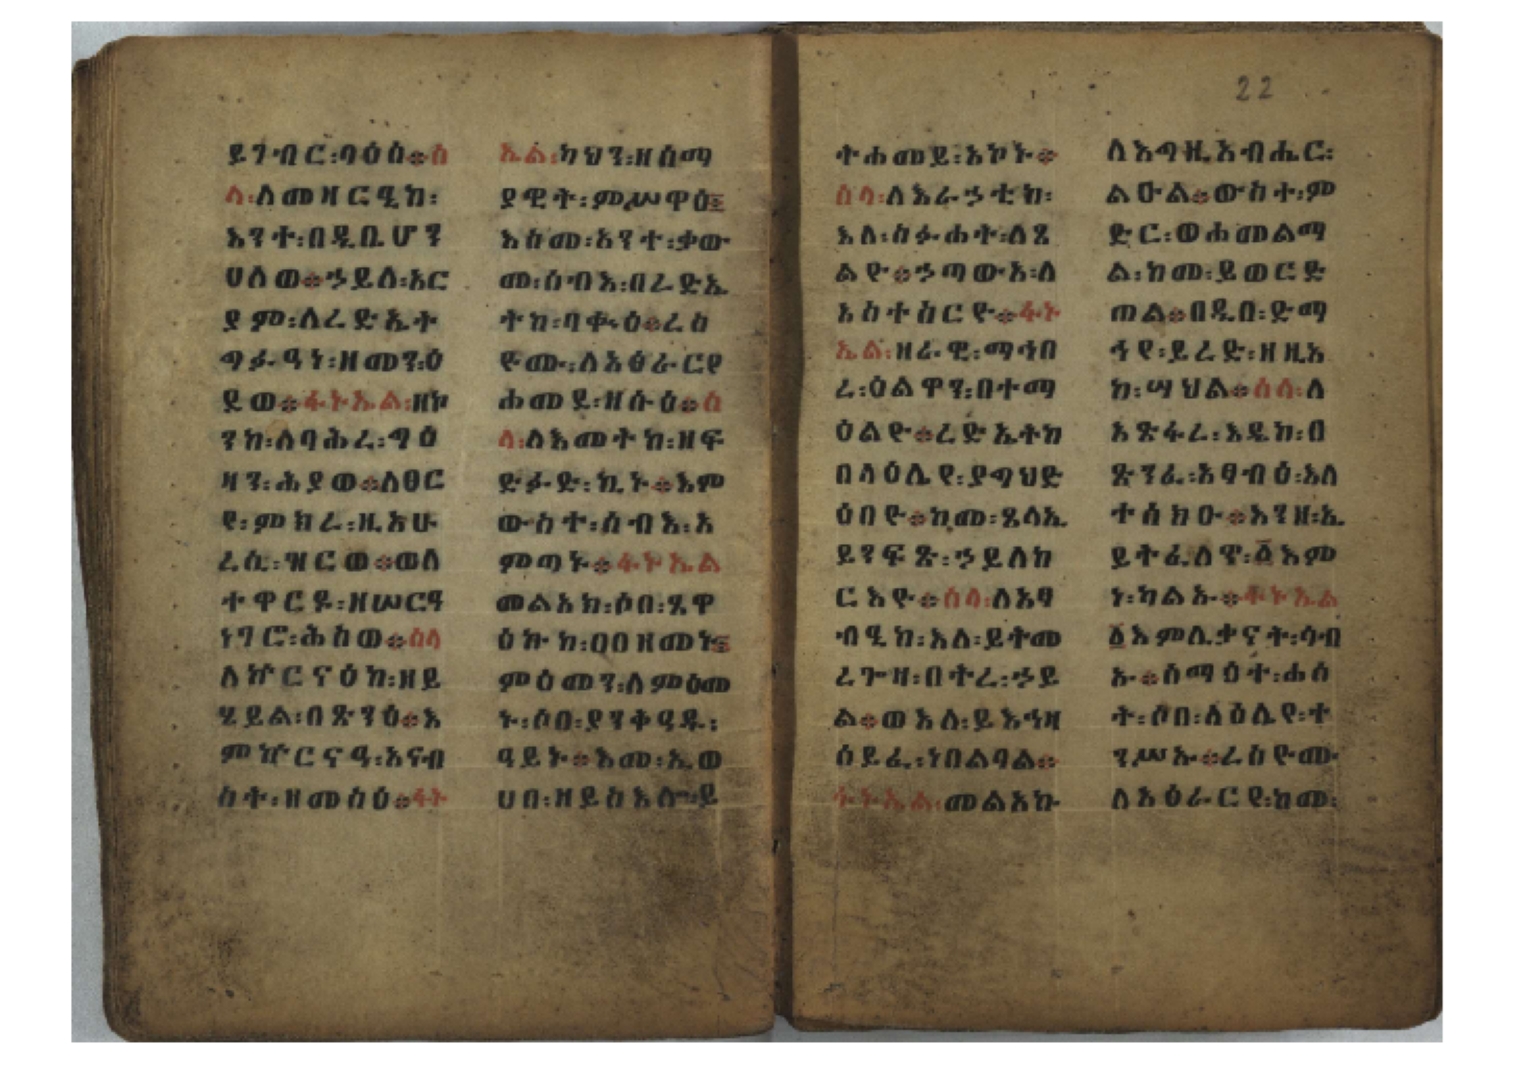 ይገብር፡ባዕስ።ሰ
ላ፡ለመዛርዒከ፡
እንተ፡በዲቤሆን
ሀለወ።ኃይለ፡አር
ያም፡ለረድኤት
ጣፉዓነ፡ዘመን፡ዕ
ደወ።ፋኑኤል፡ዘኮ
ንከ፡ለባሕረ፡ግዕ
ዛን፡ሕያወ።ለፀር
የ፡ምክረ፡ዚአሁ
ረሲ፡ዝርወ።ወለ
ተዋርዶ፡ዘሠርዓ
ነገሮ፡ሕስወ።ሰላ
ለኵርናዕከ፡ዘይ
ሄይል፡በጽንዕ።እ
ምኵርናዓ፡አናብ
ስት፡ዘመስዕ።ፋኑ
ኤል፡ካህን፡ዘሰማ
ያዊት፡ምሥዋዕ፤
እስመ፡አንተ፡ቃው
መ፡ሰብእ፡በረድኤ
ትከ፡ባቍዕ።ረሰ
ዮሙ፡ለአፅራርየ
ሐመደ፡ዘሱዕ።ሰ
ላ፡ለእመትከ፡ዘፍ
ድፉድ፡ኪኑ።እም
ውስተ፡ሰብእ፡አ
ምጣኑ።ፋኑኤል
መልአክ፡ሶበ፡ጼዋ
ዕኩከ፡ዐዐዘመኑ፤
ምዕመን፡ለምዕመ
ኑ፡ሶበ፡ያንቀዓዱ፡
ዓይኑ።እመ፡ኢወ
ሀበ፡ዘይስእሎ፡ይ
22
ትሐመይ፡አኮኑ።
ሰላ፡ለእራኃቲከ፡
እለ፡ስፉሐት፡ለጸ
ልዮ።ኃጣውአ፡ለ
አስተስርዮ።ፋኑ
ኤል፡ዘራዊ፡ማኅበ
ረ፡ዕልዋን፡በተማ
ዕልዮ።ረድኤትከ
በላዕሌየ፡ያግህድ
ዕበዮ።ከመ፡ጸላኢ
ይንፍጽ፡ኃይለከ
ርእዮ።ሰላ፡ለአፃ
ብዒከ፡እለ፡ይትመ
ረጐዛ፡በትረ፡ኃይ
ል።ወእለ፡ይእኅዛ
ዕይፈ፡ነበልባል።
ፋኑኤል፡መልአኩ
ለእግዚአብሔር፡
ልዑል።ውስተ፡ም
ድር፡ወሐመልማ
ል፡ከመ፡ይወርድ
ጠል።በዲበ፡ድማ
ኅየ፡ይረድ፡ዘዚአ
ከ፡ሣህል።ሰላ፡ለ
አጽፋረ፡እዴከ፡በ
ጽንፈ፡አፃብዕ፡እለ
ተሰክዑ።እንዘ፡ኢ
ይትፈለጥ፡፩እም
ነ፡ካልኡ።ፋኑኤል
፩እምሊቃናት፡ሳብ
ኡ።ስማዕት፡ሐሰ
ት፡ሶበ፡ለዕሌየ፡ተ
ንሥኡ።ረስዮሙ
ለአፅራርየ፡ከመ፡